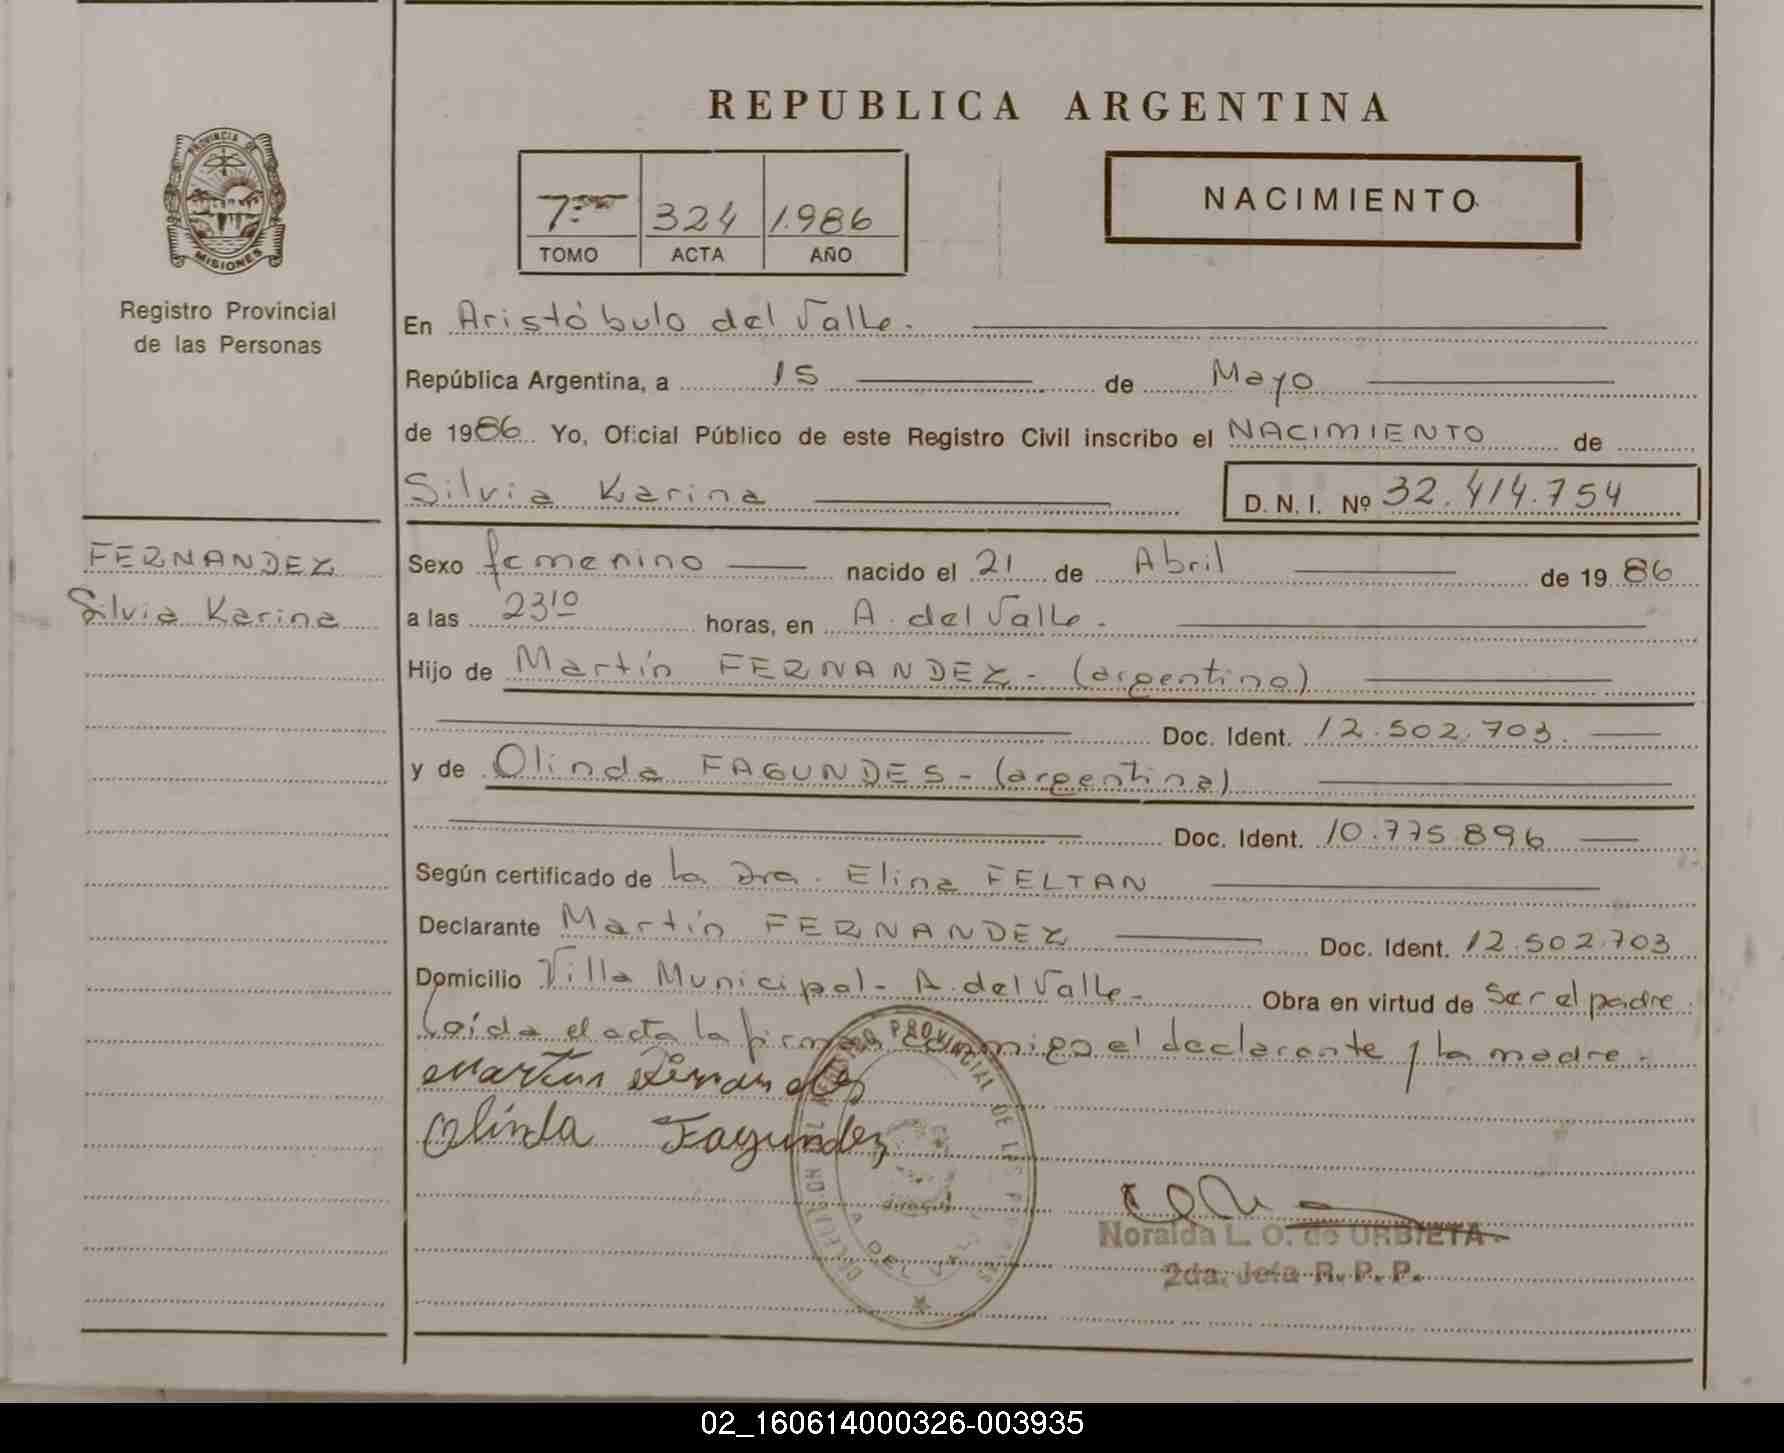 REPUBLICA ARGENTINA
PROVINCIA DE MISIONES
Registro Provincial
de las Personas
7º 324 1.986
TOMO ACTA AÑO
NACIMIENTO
En Aristóbulo del Valle.
República Argentina, a 15 de Mayo
de 1986 Yo, Oficial Público de este Registro Civil inscribo el NACIMIENTO de
Silvia Karina D. N. I. Nº 32.414.754
FERNANDEZ
Silvia Karina
Sexo femenino nacido el 21 de Abril de 1986
a las 23¹⁰ horas, en A. del Valle.
Hijo de Martín FERNANDEZ - (argentino)
Doc. Ident. 12.502.703.
y de Olinda FAGUNDES - (argentina)
Doc. Ident. 10.775.896
Según certificado de la Dra. Elina FELTAN
Declarante Martín FERNANDEZ Doc. Ident. 12.502.703
Domicilio Villa Municipal - A. del Valle - Obra en virtud de ser el padre.
Leída el acta la firman conmigo el declarante y la madre.
Martin Fernandes
Olinda Fagundez
DELEGACION DEL REGISTRO PROVINCIAL DE LAS PERSONAS
A. DEL VALLE
Noraida L. O. de URBIETA
2da. Jefa R. P. P.
02_160614000326-003935